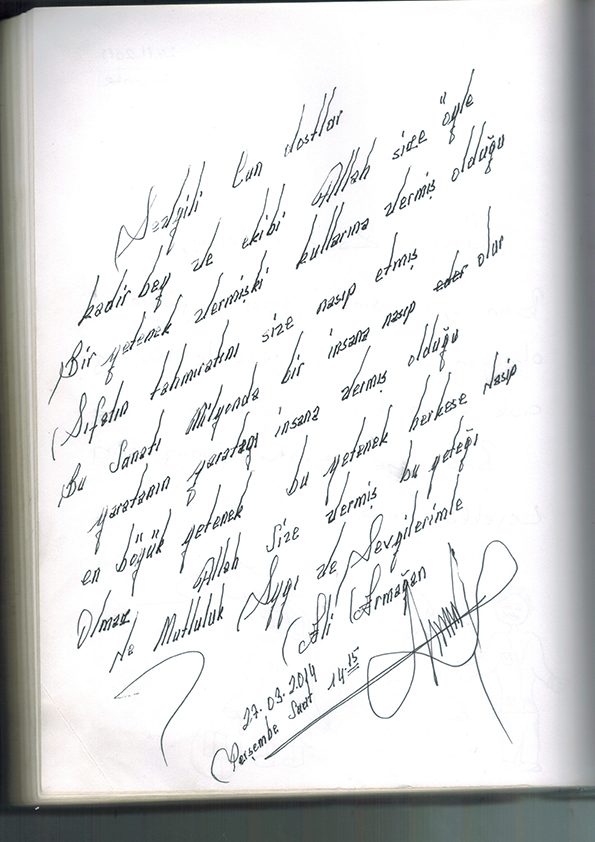 Sevgili Can dostlar
Kadir bey ve ekibi Allah size öyle
Bir yetenek vermişki kullarına vermiş olduğu
(Sıfatın tahmiratını size nasip etmiş
Bu Sanatı Milyonda bir insana nasip eder olur
yaratanın yarataği insana vermiş olduğu
en böyük yetenek bu yetenek herkese Nasip
Olmaz Allah size vermiş bu yeteği
Ne Mutluluk Sygı ve Sevgilerimle
Ali Armağan
27.03.2014
Perşembe Saat 14.15